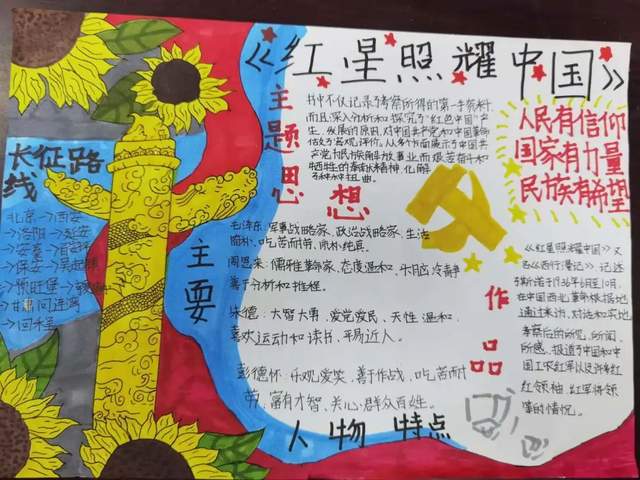 《红星照耀中国》
主题思想
书中不仅记录了考察所得的第一手资料,
而且深入分析和探究了“红色中国”产
生、发展的原因,对中国共产党和中国革命
作了客观评价。从多个方面展示了中国共
产党为民族解放事业而艰苦奋斗和
牺牲的奉献精神,
人民有信仰
国家有力量
民族有希望
长征路
线
北京→西安
→洛阳→延安
→保安→吴起镇
→预旺堡→
→甘肃河连湾
→回保安
主要
人物特点
毛泽东:军事战略家、政治战略家、生活
简朴、吃苦耐劳、质朴纯真。
周恩来:儒雅革命家、态度温和、头脑冷静
善于分析和推理。
朱德:大智大勇、爱党爱民、天性温和、
喜欢运动和读书、平易近人。
彭德怀:乐观爱笑、善于作战、吃苦耐
劳、富有才智、关心群众百姓。
作品
《红星照耀中国》又
名《西行漫记》,记述
了斯诺于1936年6月至10月,
在中国西北革命根据地
通过采访、对话和实地
考察后的所见、所闻、
所感,报道了中国和中
国工农红军以及许多红
红领袖、红军将领
等的情况。